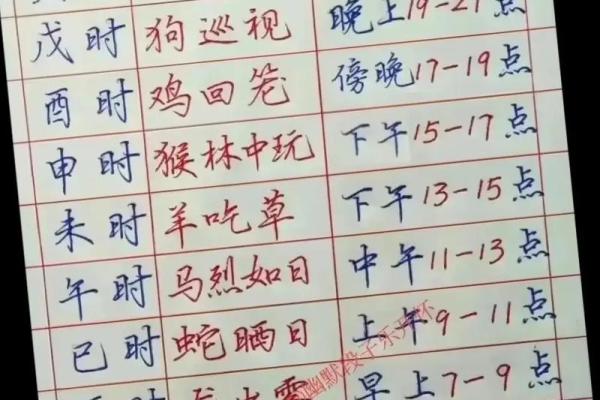 戌时 狗巡视 晚上19-21点
酉时 鸡回笼 傍晚17-19点
申时 猴林中玩 下午15-17点
未时 羊吃草 下午13-15点
午时 马烈如日 中午11-13点
巳时 蛇晒日 上午9-11点
时 早上7-9点
幽默段子乐开怀